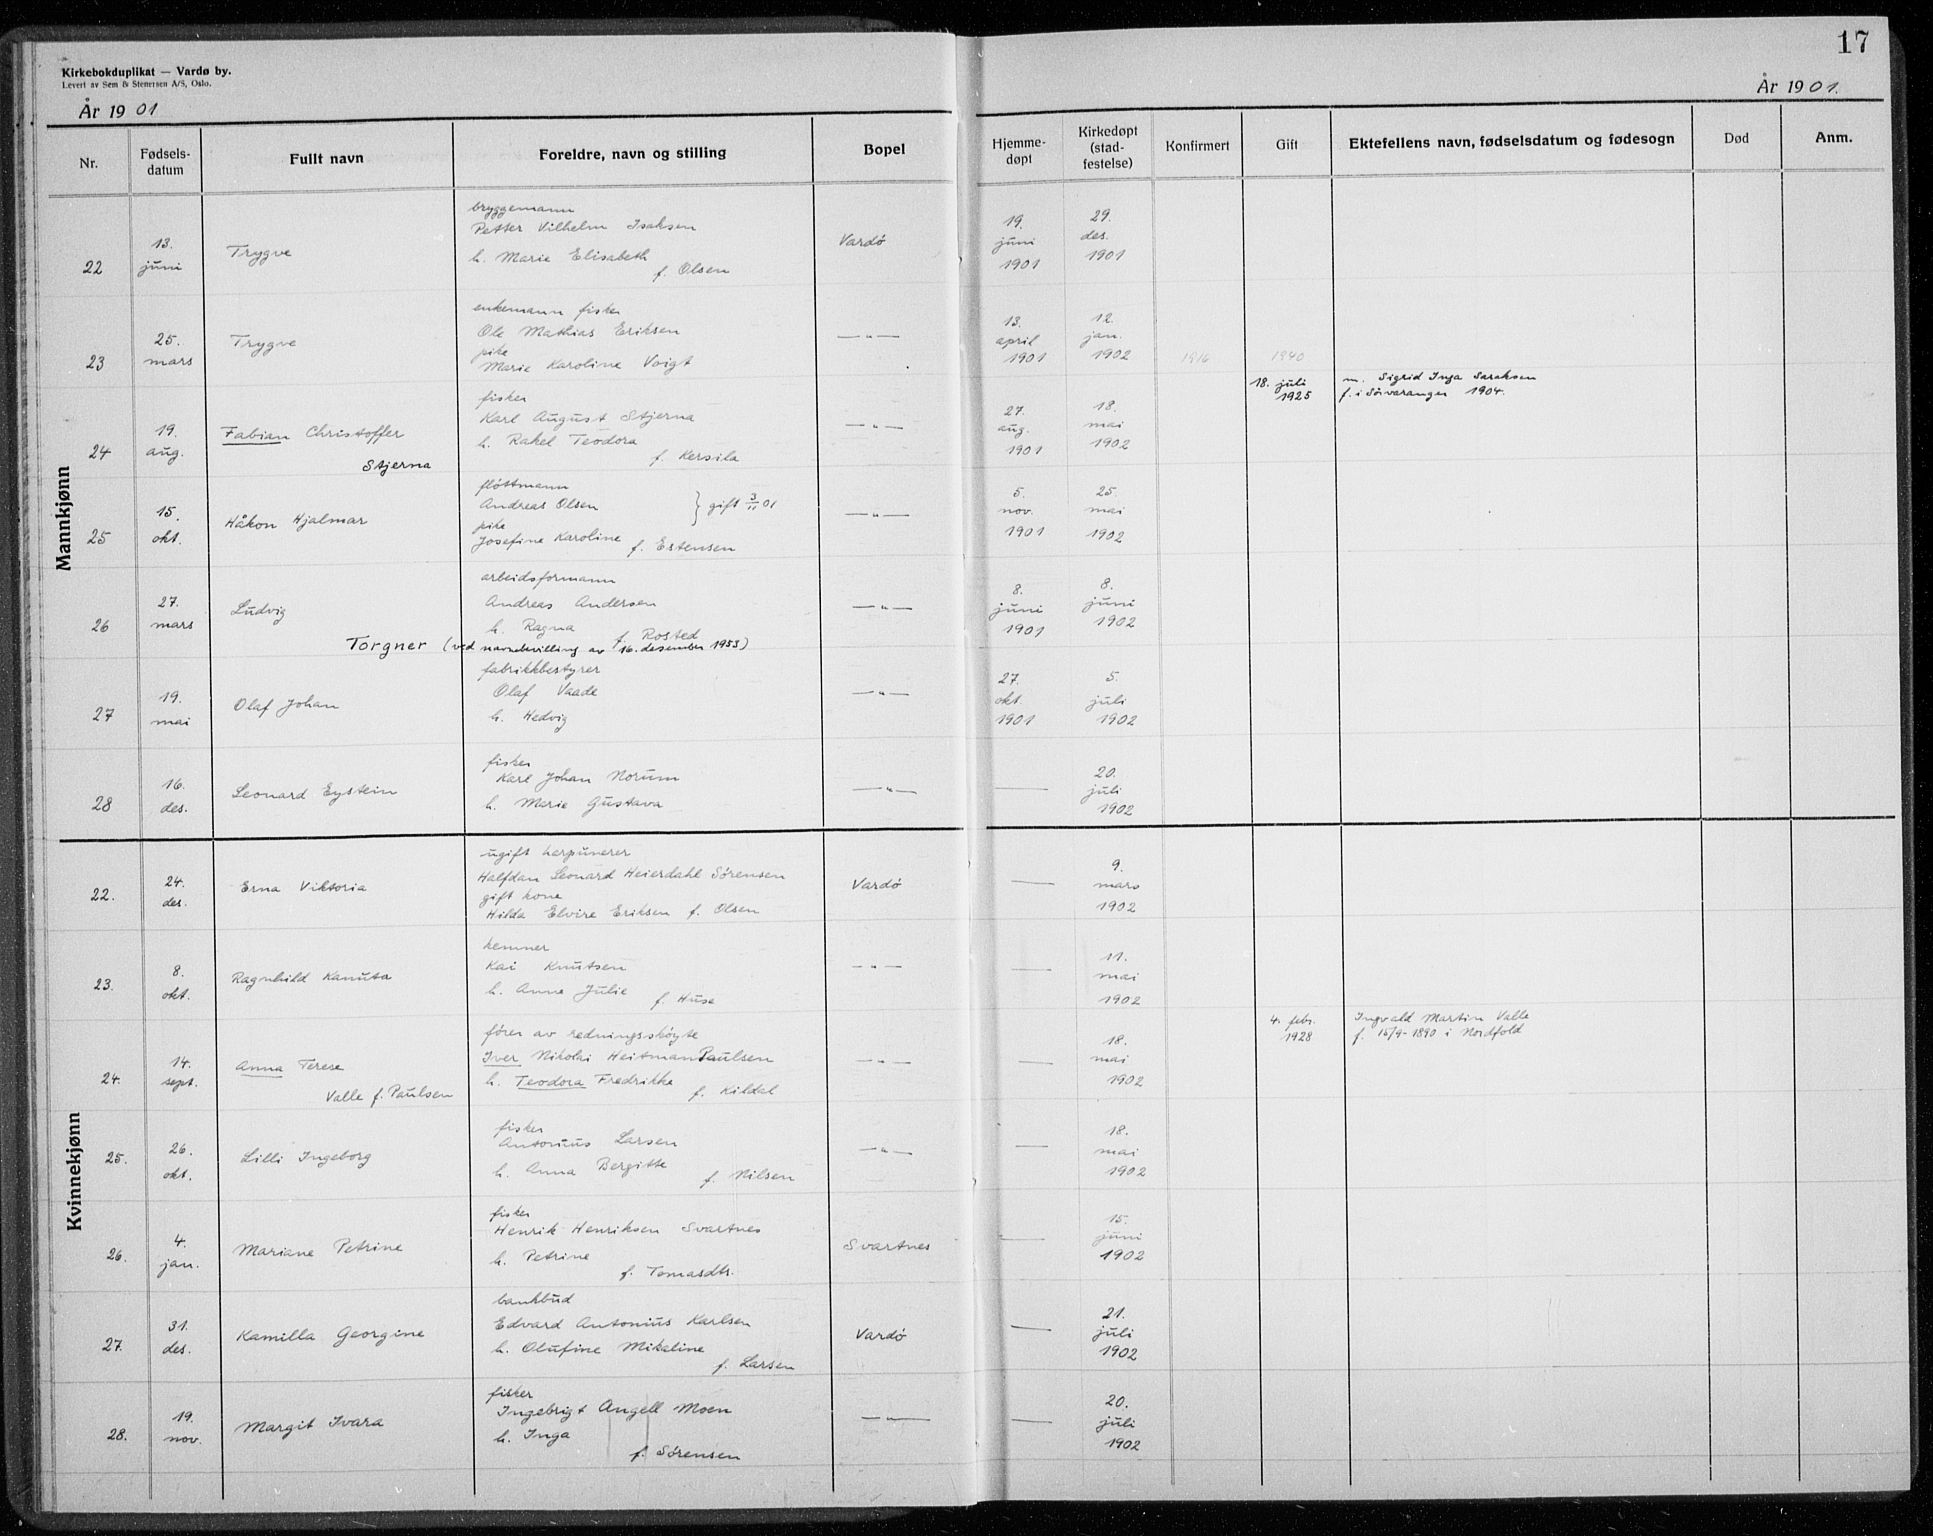 17
Kirkebokduplikat — Vardø by.
Levert av Sem & Stenersen A/S, Oslo.
År 1901
År 1901.
Nr. Fødselsdatum Fullt navn Foreldre, navn og stilling Bopel Hjemmedøpt Kirkedøpt (stadfestelse) Konfirmert Gift Ektefellens navn, fødselsdatum og fødesogn Død Anm.
Mannkjønn
bryggemann
Petter Vilhelm Isaksen
22 13. juni Trygve h. Marie Elisabeth f. Olsen Vardö 19. juni 1901 29. des. 1901
enkemann fisker
Ole Mathias Eriksen
pike
23 25. mars Trygve Marie Karoline Voigt —„— 13. april 1901 12. jan. 1902 1916 1940
fisker
Karl August Stjerna
24 19. aug. Fabian Christoffer h. Rakel Teodora —„— 27. aug. 1901 18. mai 1902 18. juli 1925 m. Sigrid Inga Saraksen
f. i Sörvaranger 1904.
Stjerna f. Kersila
flöttmann
Andreas Olsen } gift 3/11 01
pike
25 15. okt. Håkon Hjalmar Josefine Karoline f. Estensen —„— 5. nov. 1901 25. mai 1902
arbeidsformann
Andreas Andersen
26 27. mars Ludvig h. Ragna f. Rosted —„— 8. juni 1901 8. juni 1902
Torgner (ved navnebevilling av 16. desember 1953)
fabrikkbestyrer
Olaf Vaade
27 19. mai Olaf Johan h. Hedvig —„— 27. okt. 1901 5. juli 1902
fisker
Karl Johan Norum
28 16. des. Leonard Eystein h. Marie Gustava —„— — 20. juli 1902
Kvinnekjønn
ugift harpunerer
Halfdan Leonard Heierdahl Sörensen
gift kone
22. 24. des. Erna Viktoria Hilda Elvire Eriksen f. Olsen Vardö — 9. mars 1902
kemner
Kai Knutsen
23. 8. okt. Ragnhild Kanuta h. Anne Julie f. Huse —„— — 11. mai 1902
förer av redningsskögte
Iver Nikolai Heitman Paulsen
24. 14. sept. Anna Terese h. Teodora Fredrikke —„— — 18. mai 1902 4. febr. 1928 Ingvald Martin Valle
f. 15/9-1890 i Nordfold
Valle f. Paulsen f. Kildal
fisker
Antonius Larsen
25. 26. okt. Lilli Ingeborg h. Anna Bergitte f. Nilsen —„— — 18. mai 1902
fisker
Henrik Henriksen Svartnes
26. 4. jan. Mariane Petrine h. Petrine f. Tomasdtr. Svartnes — 15. juni 1902
bankbud
Edvard Antonius Karlsen
27. 31. des. Kamilla Georgine h. Olufine Mikaline f. Larsen Vardö — 21. juli 1902
fisker
Ingebrigt Angell Moen
28. 19. nov. Margit Ivara h. Inga f. Sörensen —„— — 20. juli 1902